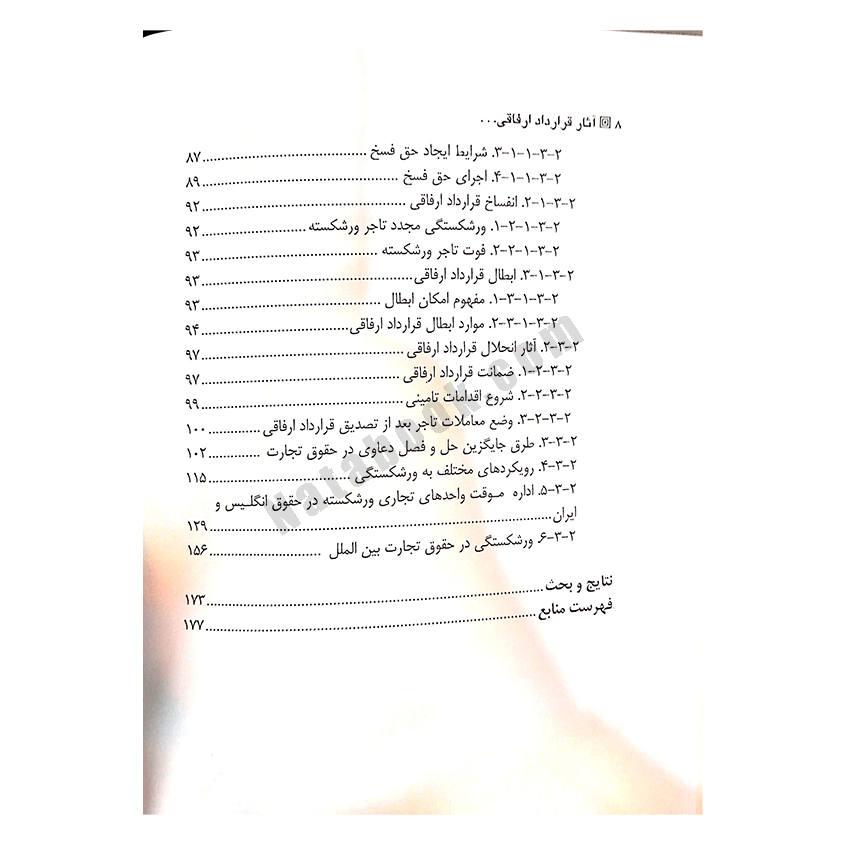 ۸ آثار قرارداد ارفاقی...
۲-۳-۱-۱-۳. شرایط ایجاد حق فسخ ........ ۸۷
۲-۳-۱-۱-۴. اجرای حق فسخ ........ ۸۹
۲-۳-۱-۲. انفساخ قرارداد ارفاقی ........ ۹۲
۲-۳-۱-۲-۱. ورشکستگی مجدد تاجر ورشکسته ........ ۹۲
۲-۳-۱-۲-۲. فوت تاجر ورشکسته ........ ۹۳
۲-۳-۱-۳. ابطال قرارداد ارفاقی ........ ۹۳
۲-۳-۱-۳-۱. مفهوم امکان ابطال ........ ۹۳
۲-۳-۱-۳-۲. موارد ابطال قرارداد ارفاقی ........ ۹۴
۲-۳-۲. آثار انحلال قرارداد ارفاقی ........ ۹۷
۲-۳-۲-۱. ضمانت قرارداد ارفاقی ........ ۹۷
۲-۳-۲-۲. شروع اقدامات تامینی ........ ۹۹
۲-۳-۲-۳. وضع معاملات تاجر بعد از تصدیق قرارداد ارفاقی ........ ۱۰۰
۲-۳-۳. طرق جایگزین حل و فصل دعاوی در حقوق تجارت ........ ۱۰۲
۲-۳-۴. رویکردهای مختلف به ورشکستگی ........ ۱۱۵
۲-۳-۵. اداره موقت واحدهای تجاری ورشکسته در حقوق انگلیس و
ایران ........ ۱۲۹
۲-۳-۶. ورشکستگی در حقوق تجارت بین الملل ........ ۱۵۶
نتایج و بحث ........ ۱۷۳
فهرست منابع ........ ۱۷۷
Natabook.com